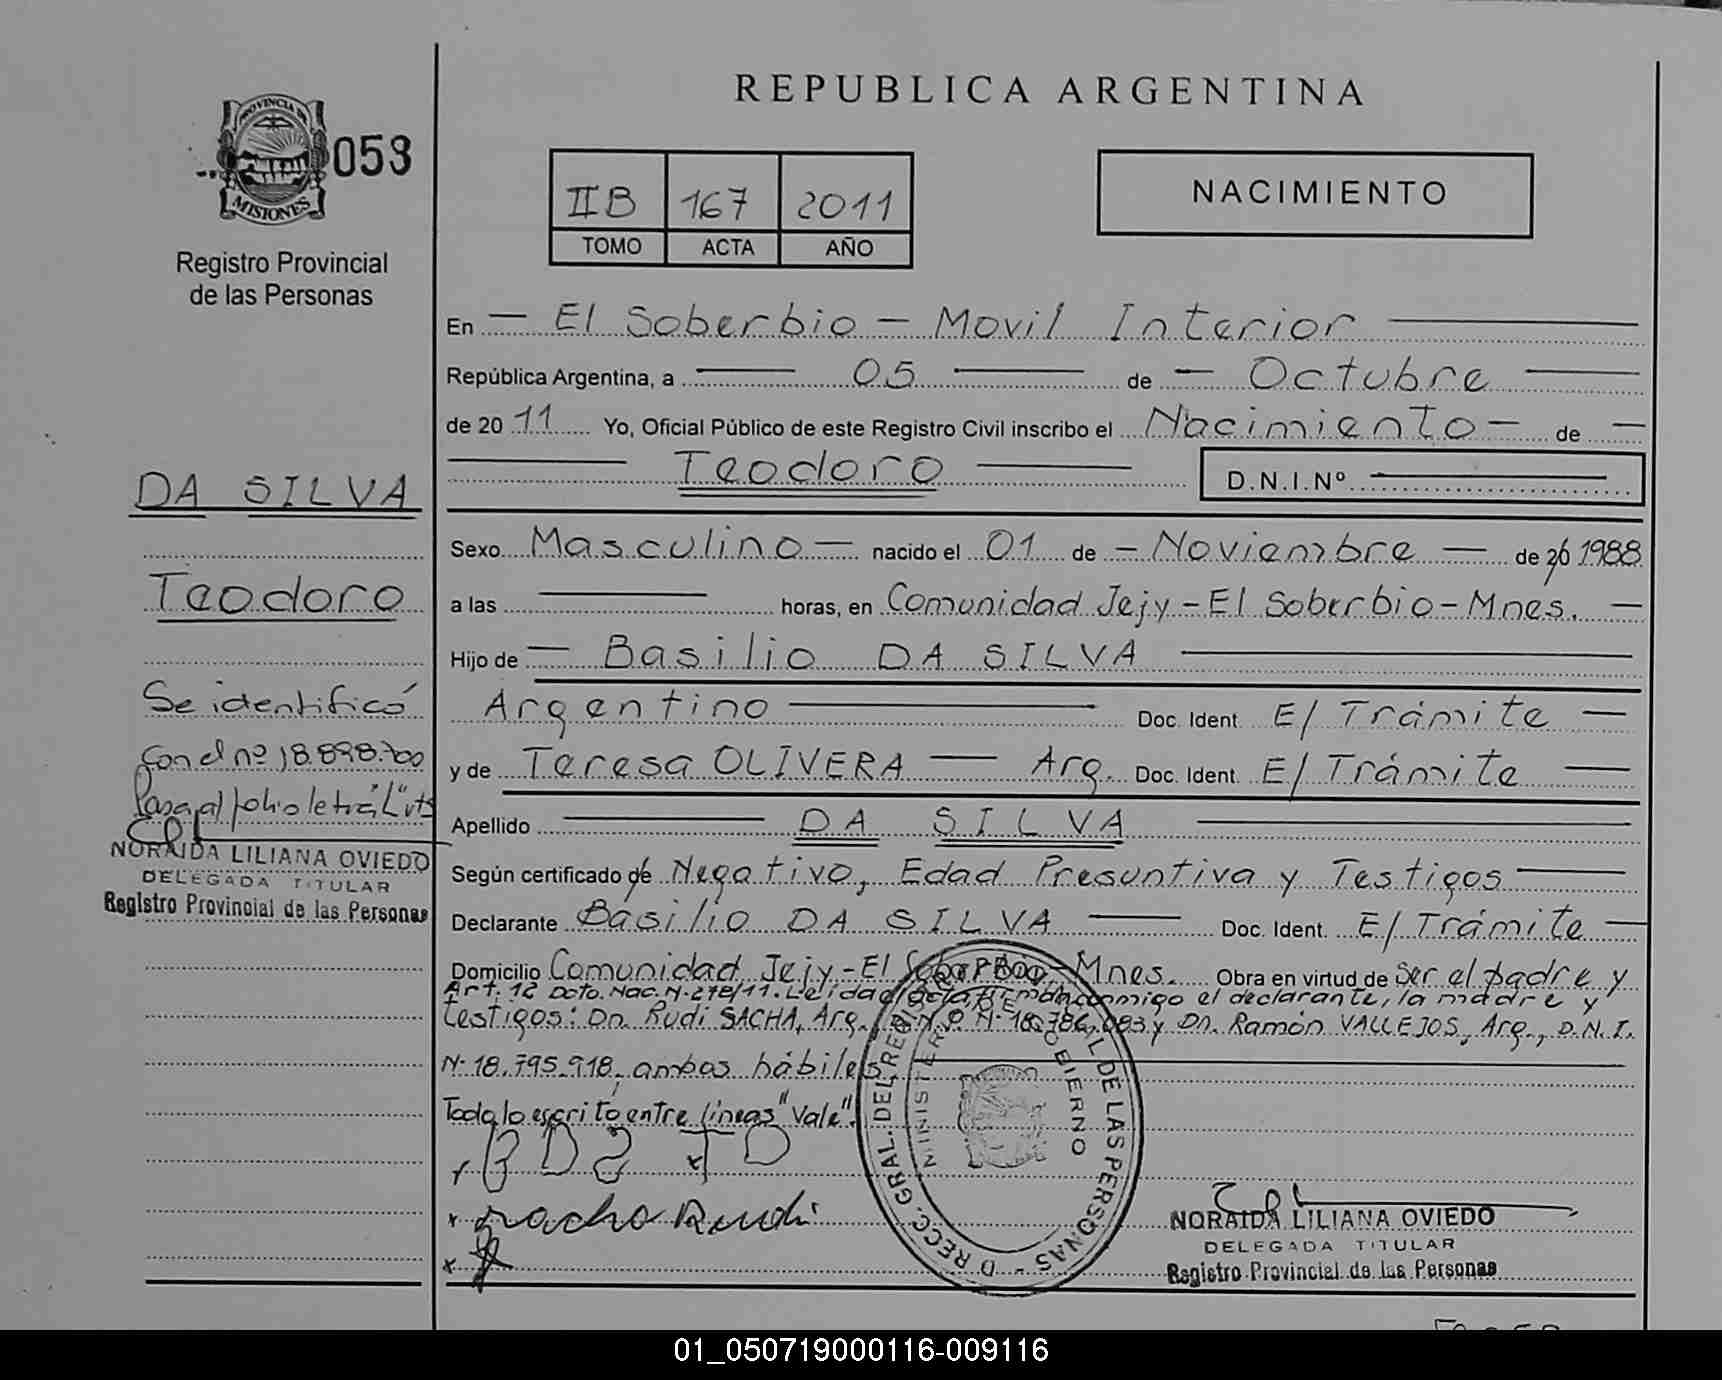 REPUBLICA ARGENTINA
PROVINCIA DE
MISIONES
053
Registro Provincial
de las Personas
IIB 167 2011
TOMO ACTA AÑO
NACIMIENTO
En — El Soberbio — Movil Interior —
República Argentina, a — 05 — de — Octubre —
de 20 11 Yo, Oficial Público de este Registro Civil inscribo el Nacimiento — de —
— Teodoro — D.N.I.Nº —
DA SILVA
Teodoro
Se identificó
con el nº 18.898.700
Pasa al folio letra "L"
NORAIDA LILIANA OVIEDO
DELEGADA TITULAR
Registro Provincial de las Personas
Sexo Masculino — nacido el 01 de — Noviembre — de 20 1988
a las — horas, en Comunidad Jejy - El Soberbio - Mnes. —
Hijo de — Basilio DA SILVA —
Argentino — Doc. Ident. E/ Trámite —
y de Teresa OLIVERA — Arg. Doc. Ident. E/ Trámite —
Apellido — DA SILVA —
Según certificado de Negativo, Edad Presuntiva y Testigos —
Declarante Basilio DA SILVA — Doc. Ident. E/ Trámite —
Domicilio Comunidad Jejy - El Soberbio - Mnes. Obra en virtud de ser el padre y
Art. 12 Dcto. Nac. Nº 278/11. Leída el acta firman conmigo el declarante, la madre y
testigos: Dn. Rudi SACHA, Arg., D.N.I. Nº 18.786.083 y Dn. Ramón VALLEJOS, Arg., D.N.I.
Nº 18.795.918, ambos hábiles.
Todo lo escrito entre líneas "Vale".
x BDS x TD
x Sacha Rudi
x
D RECC. GRAL. DEL REGISTRO PROVINCIAL DE LAS PERSONAS
MINISTERIO DE GOBIERNO
NORAIDA LILIANA OVIEDO
DELEGADA TITULAR
Registro Provincial de las Personas
01_050719000116-009116